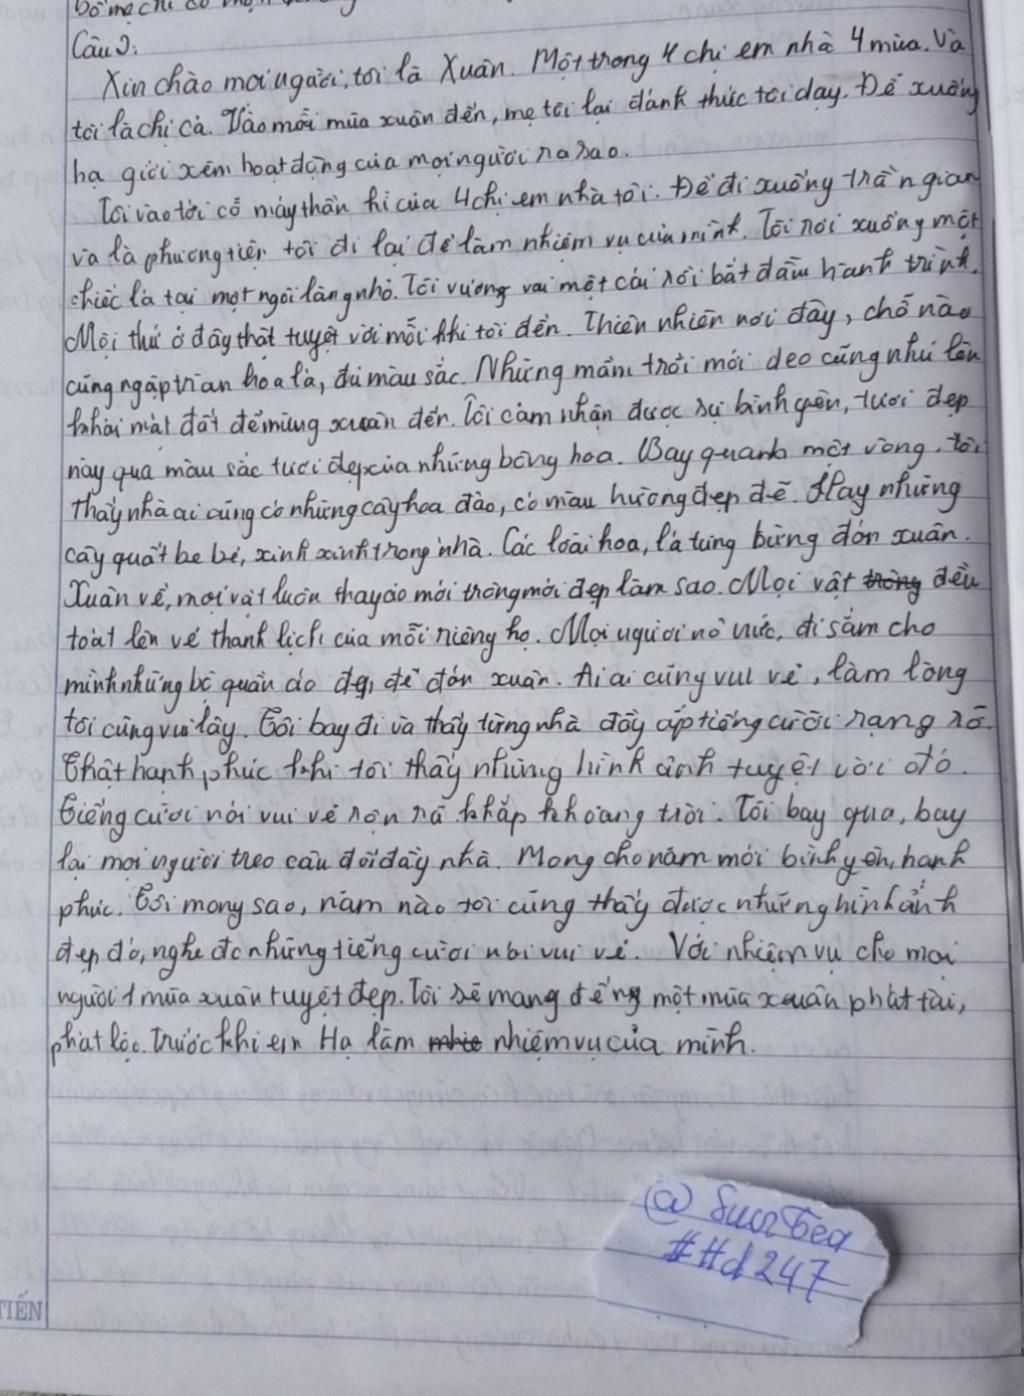 Bố mẹ chỉ có một
Câu 2:
Xin chào mọi người, tôi là Xuân. Một trong 4 chị em nhà 4 mùa. Và
tôi là chị cả. Vào mỗi mùa xuân đến, mẹ tôi lại đánh thức tôi dạy. Để xuống
hạ giới xem hoạt động của mọi người ra sao.
Tôi vào tới cỗ máy thần kì của 4 chị em nhà tôi. Để đi xuống trần gian
và là phương tiện tôi đi lại để làm nhiệm vụ của mình. Tôi rơi xuống một
chiếc lá tại một ngôi làng nhỏ. Tôi vương vai một cái rồi bắt đầu hành trình.
Mọi thứ ở đây thật tuyệt vời mỗi khi tôi đến. Thiên nhiên nơi đây, chỗ nào
cũng ngập tràn hoa lá, đủ màu sắc. Những mầm trồi mới deo cũng nhú lên
khỏi mặt đất để mừng xuân đến. Tôi cảm nhận được sự bình yên, tươi đẹp
này qua màu sắc tươi đẹp của những bông hoa. Bay quanh một vòng, tôi
thấy nhà ai cũng có những cây hoa đào, có màu hường đẹp đẽ. Hay những
cây quất be bé, xinh xinh trong nhà. Các loài hoa, lá tưng bừng đón xuân.
Xuân về, mọi vật luôn thay áo mới trông mới đẹp làm sao. Mọi vật trông đều
toát lên vẻ thanh lịch của mỗi riêng họ. Mọi người nô nức, đi sắm cho
mình những bộ quần áo đẹp để đón xuân. Ai ai cũng vui vẻ, làm lòng
tôi cũng vui lây. Tôi bay đi và thấy từng nhà đầy ắp tiếng cười rạng rỡ.
Thật hạnh phúc khi tôi thấy những hình ảnh tuyệt vời đó.
Tiếng cười nói vui vẻ rộn rã khắp khoảng trời. Tôi bay qua, bay
lại mọi người treo câu đối đầy nhà. Mong cho năm mới bình yên, hạnh
phúc. Tôi mong sao, năm nào tôi cũng thấy được những hình ảnh
đẹp đó, nghe đc những tiếng cười nói vui vẻ. Với nhiệm vụ cho mọi
người 1 mùa xuân tuyệt đẹp. Tôi sẽ mang đến một mùa xuân phát tài,
phát lộc. Trước khi em Hạ làm nhiệm vụ của mình.
@SuorTea
#Hd247
TIẾN